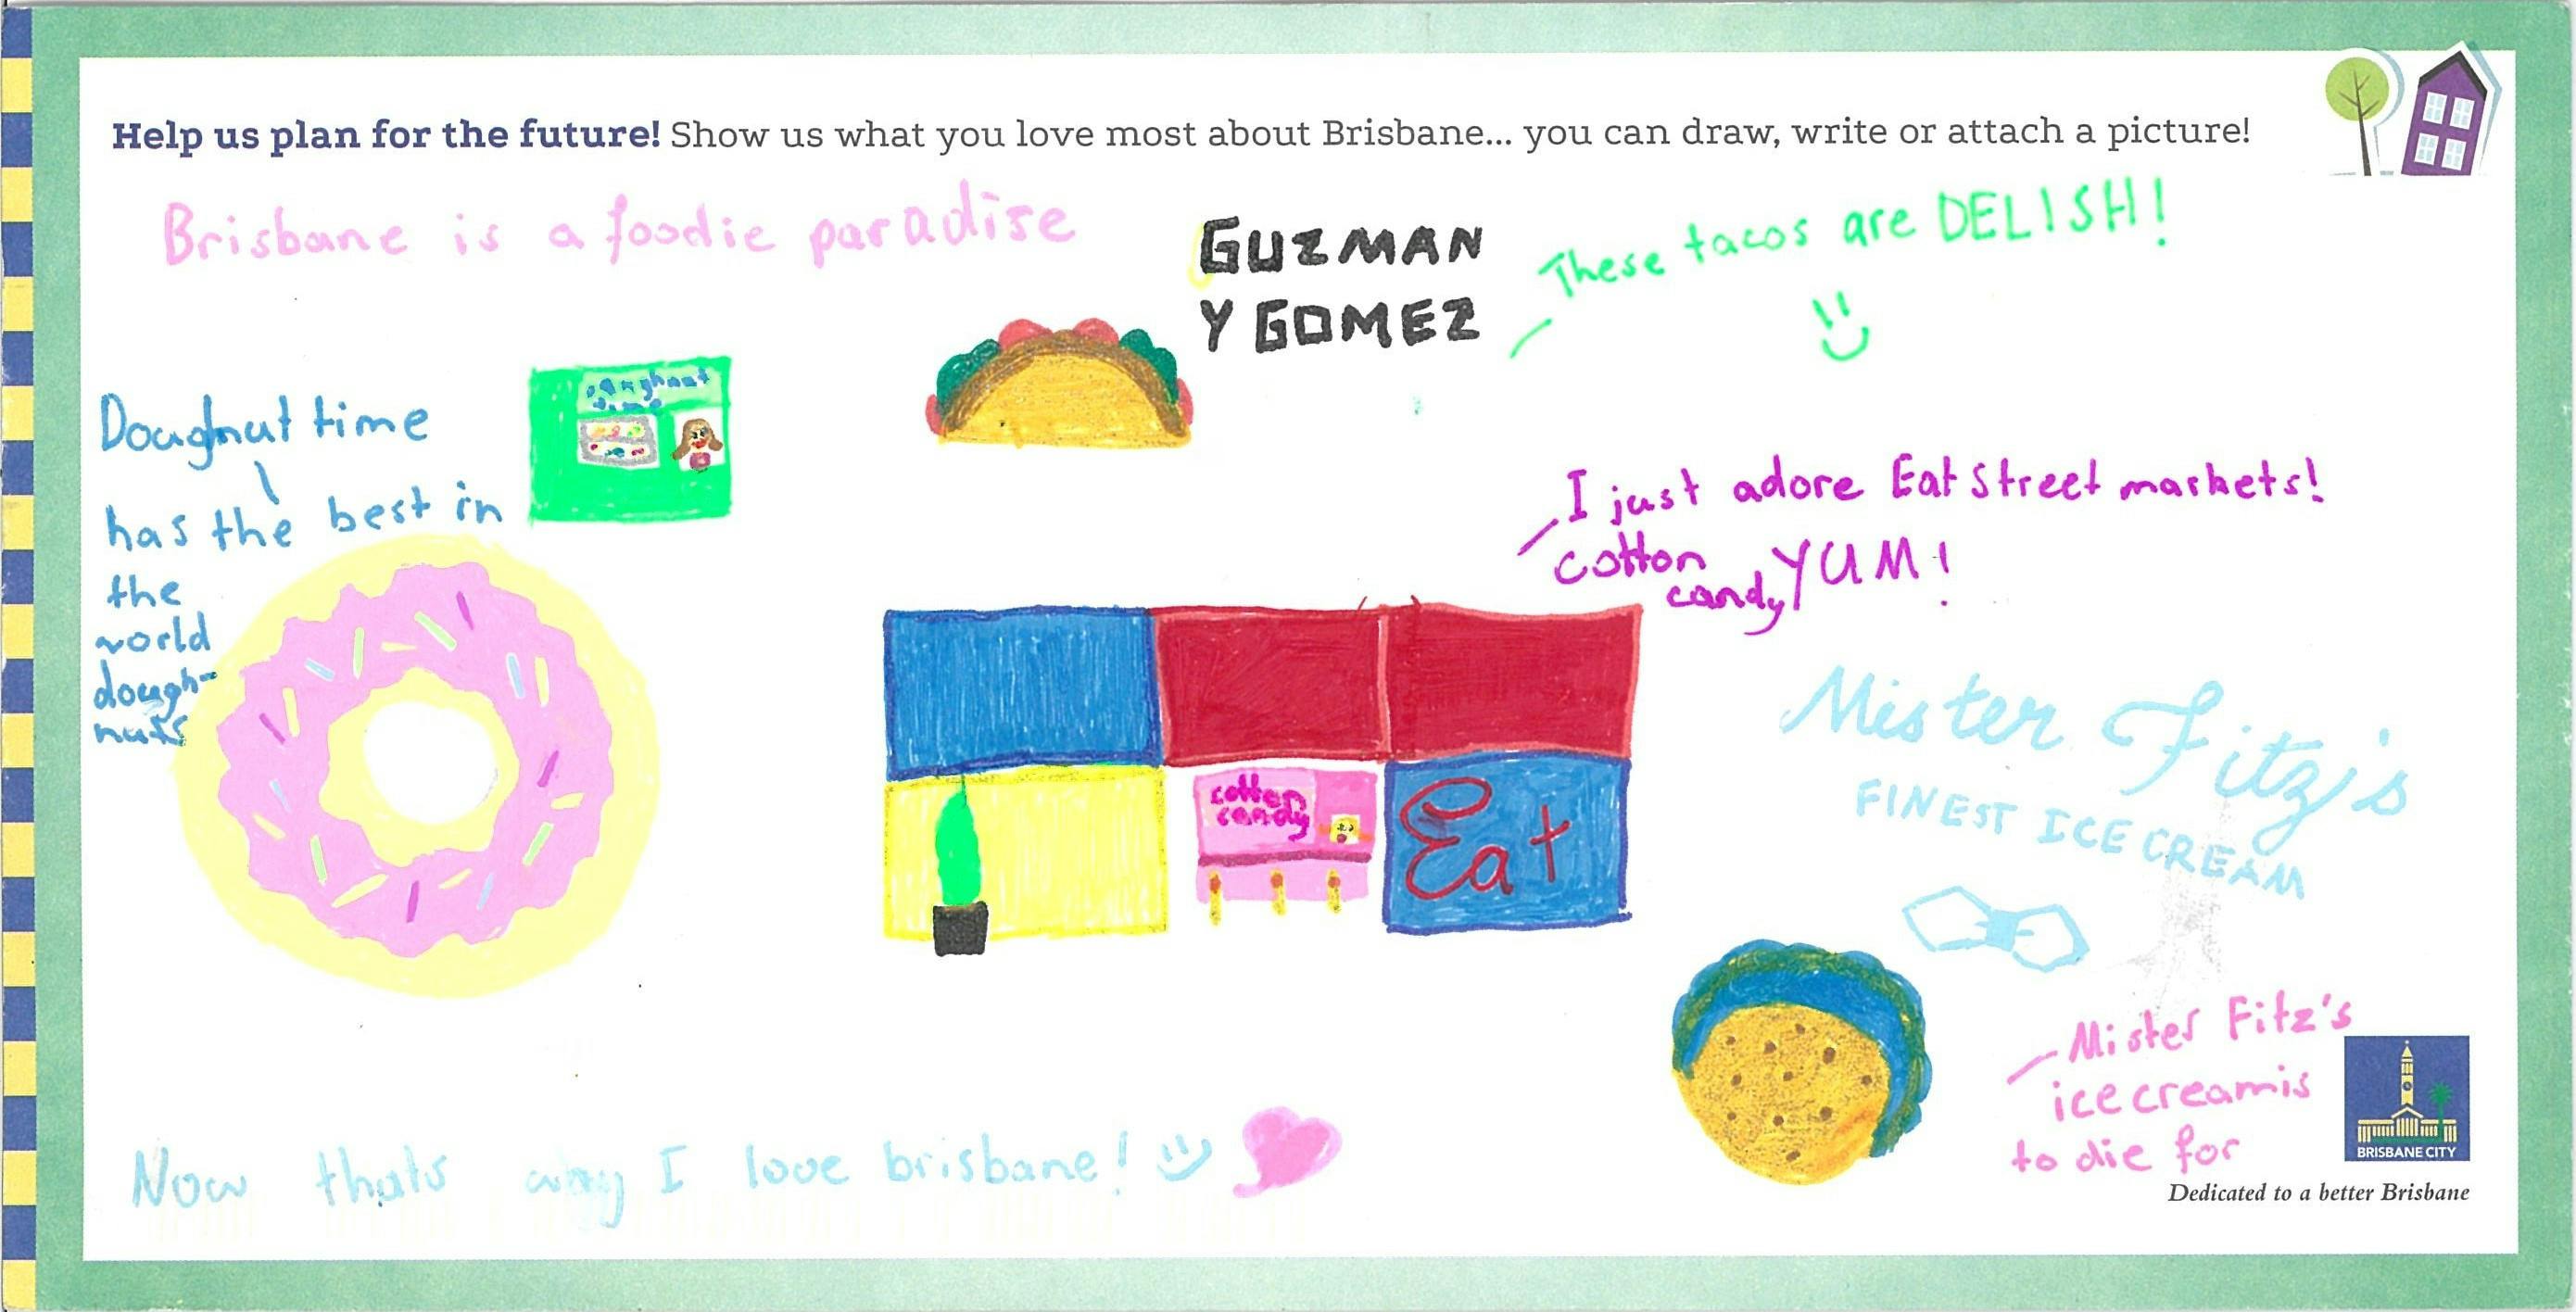 Help us plan for the future! Show us what you love most about Brisbane... you can draw, write or attach a picture!
Brisbane is a foodie paradise
GUZMAN
Y GOMEZ
These tacos are DELISH!
Doughnut time
has the best in
the
world
dough-
nuts
doughnut
time
I just adore Eat Street markets!
cotton
candy YUM!
cotton
candy
Eat
Mister Fitz's
FINEST ICE CREAM
Mister Fitz's
ice cream is
to die for
Now thats why I love brisbane!
BRISBANE CITY
Dedicated to a better Brisbane